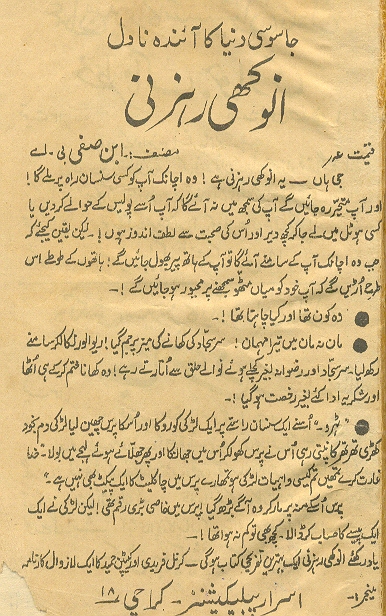 جاسوسی دنیا کا آئندہ ناول
انوکھی رہزنی
قیمت عہ مصنف:۔ ابن صفی بی۔ اے
جی ہاں — یہ انوکھی رہزنی ہے! وہ اچانک آپ کو کسی سنسان راہ پر ملے گا!
اور آپ متحیر رہ جائیں گے آپ کی سمجھ میں نہ آئے گا کہ آپ اُسے پولیس کے حوالے کردیں یا
کسی ہوٹل میں لے جاکر کچھ دیر اور اُس کی صحبت سے لطف اندوز ہوں!۔ لیکن یقین کیجئے کہ
جب وہ اچانک آپ کے سامنے آئے گا تو آپ کے ہاتھ پیر پھول جائیں گے! ہاتھوں کے طوطے اس
طرح اُڑیں گے کہ آپ خود کو میاں مٹھو سمجھنے پر مجبور ہو جائیں گے!۔
● وہ کون تھا اور کیا چاہتا تھا!۔
● مان نہ مان میں تیرا مہمان! سرسجاد کی کھانے کی میز پر جم گیا! ریوالور نکال کر سامنے
رکھ لیا۔ سرسجاد اور رضوانہ بغیر کچلے ہوئے نوالے حلق سے اُتارتے رہے! وہ کھانا ختم کرکے ہی اُٹھا
اور شکریہ ادا کئے بغیر رخصت ہو گیا!۔
● "ٹھہرو۔" اُسنے ایک سنسان راستے پر ایک لڑکی کو روکا اور اُسکا پرس چھین لیا لڑکی دم بخود
کھڑی تھر تھر کانپتی رہی اُس نے پرس کھول کر اُس میں جھانکا اور پھر جھلائے ہوئے لہجے میں بولا۔ "خدا
غارت کرے تمھیں تم کیسی واہیات لڑکی ہو تمھارے پرس میں چاکلیٹ کا ایک پیکٹ بھی نہیں ہے۔"
پرس اُسکے منہ پر مار کر وہ آگے بڑھ گیا! پرس میں خاصی بڑی رقم تھی! لیکن لڑکی نے ایک
ایک پیسے کا حساب کر ڈالا۔ کچھ بھی تو کم نہ ہوا تھا!۔
یاد رکھئے انوکھی رہزنی ایک بہترین تفریحی کتاب ہوگی۔ کرنل فریدی اور کیپٹن حمید کا ایک لازوال کارنامہ
منیجر:۔ اسرار پبلیکیشنز۔ کراچی ۱۸